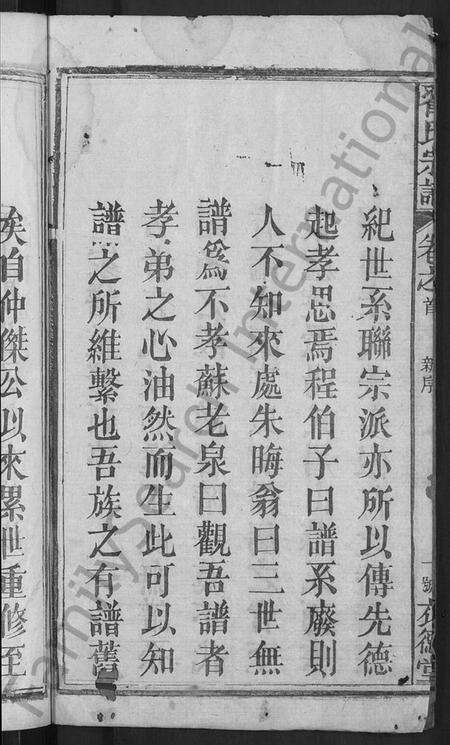 紀世系聯宗派亦所以傳先德
起孝思焉程伯子曰譜系廢則
人不知來處朱晦翁曰三世無
譜爲不孝蘇老泉曰觀吾譜者
孝弟之心油然而生此可以知
譜之所維繫也吾族之有譜舊
自仲傑公以來累世重修至
氏宗譜
卷之首 新序
一號
德堂
FamilySearch International